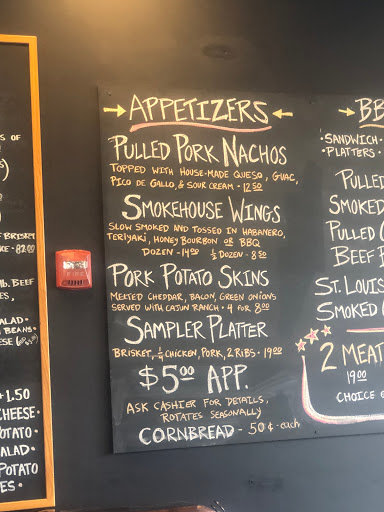 S OF
F BRISKET
KE - 82.00
lb. BEEF
ES,
ALAD -
BEANS -
ESE
+ 1.50
CHEESE -
OTATO -
ALAD -
POTATO
ES -
→ APPETIZERS ←
PULLED PORK NACHOS
TOPPED WITH HOUSE-MADE QUESO, GUAC,
PICO DE GALLO, & SOUR CREAM - 12.50
SMOKEHOUSE WINGS
SLOW SMOKED AND TOSSED IN HABANERO,
TERIYAKI, HONEY BOURBON OR BBQ
DOZEN - 14.00 ½ DOZEN - 8.50
PORK POTATO SKINS
MELTED CHEDDAR, BACON, GREEN ONIONS
SERVED WITH CAJUN RANCH - 4 FOR 8.00
SAMPLER PLATTER
BRISKET, ¼ CHICKEN, PORK, 2 RIBS - 19.00
$5.00 APP.
ASK CASHIER FOR DETAILS,
ROTATES SEASONALLY
CORNBREAD - 50¢ - each
→ BB
• SANDWICH -
• PLATTERS -
PULLED
SMOKED
PULLED
BEEF
ST. LOUIS
SMOKED
2 MEAT
19.00
CHOICE